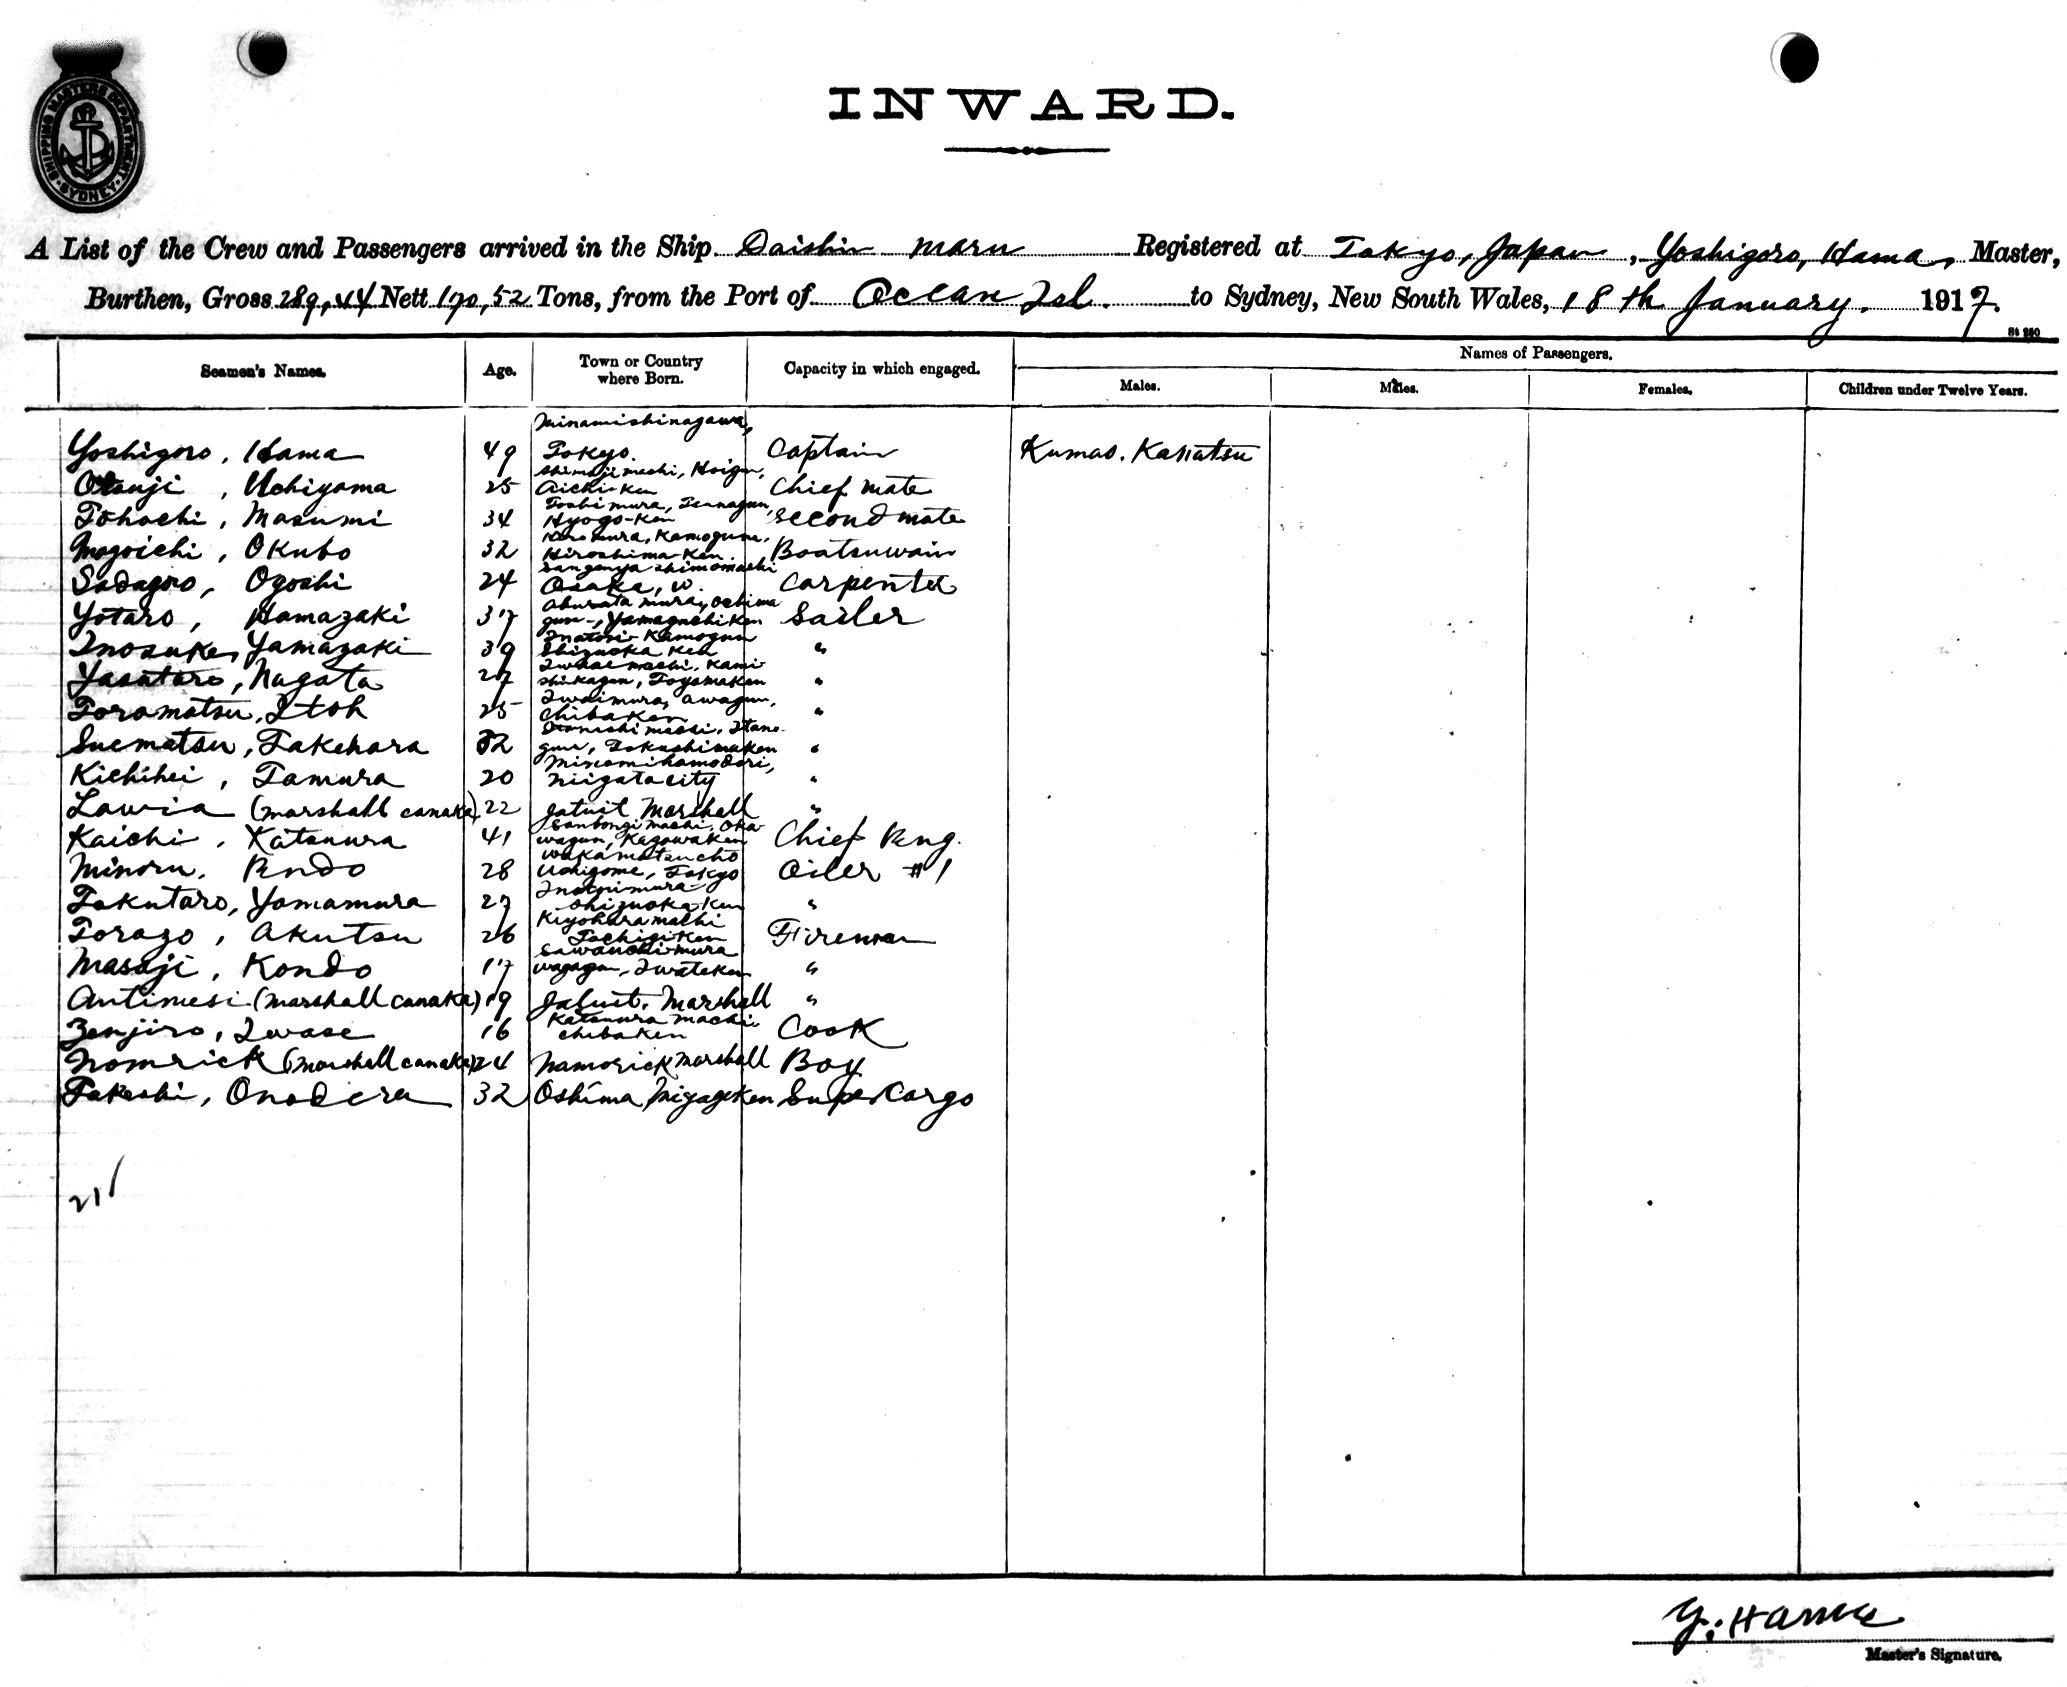 SHIPPING MASTERS DEPARTMENT
SYDNEY
INWARD.
A List of the Crew and Passengers arrived in the Ship Daishin Maru Registered at Tokyo, Japan, Yoshigoro, Hama, Master,
Burthen, Gross 289,44 Nett 170,52 Tons, from the Port of Ocean Isl. to Sydney, New South Wales, 18th January. 1917.
Seamen's Names. Age. Town or Country where Born. Capacity in which engaged. Names of Passengers.
Males. Males. Females. Children under Twelve Years.
Minamishinagawa,
Yoshigoro, Hama 49 Tokyo. Captain Kumao. Kanatsu
Shimojimachi, Hoigun,
Otsuji, Uchiyama 25 Aichi-Ken Chief mate
Tohachi, Masumi 34 Hyogo-Ken Second mate
Kamoguna,
Magoichi, Okubo 32 Hiroshima-Ken. Boatsuwain
Sangenya Shimomachi
Sadagoro, Ogoshi 24 Osaka, W. Carpenter
Aburata mura, Ochima
Yotaro, Hamazaki 37 gun-, Yamaguchi Ken Sailer
Inatori- Kamogun
Inosuke, Yamazaki 39 Shizuoka Ken "
Iwase machi, Kami-
Yasutaro, Nagata 27 shikagun, Toyamaken "
Iwaimura, Awagun,
Toramatsu, Itoh 25 Chibaken "
Itano-
Suematsu, Takehara 32 gun, Tokushimaken "
Minamihamadori,
Kichihei, Tamura 20 Niigata city "
Lawia (Marshall canaka) 22 Jaluit Marshall "
Sanbongi machi, Oka-
Kaichi, Katsuura 41 wagun, Kagawaken Chief Eng.
Wakamatsucho
Minoru, Endo 28 Ushigome, Tokyo Oiler #1
Inatorimura
Tokutaro, Yamamura 27 Shizuoka Ken "
Kiyohara machi
Torazo, Akutsu 26 Tochigiken Fireman
Sawauchi-mura
Masaji, Kondo 17 Wagagun, Iwateken "
Antimesi (Marshall canaka) 19 Jaluit, Marshall "
Katsuura machi
Zenjiro, Iwase 16 Chibaken Cook
Nomrick (Marshall canaka) 24 Namorick Marshall Boy
Takeshi, Onodera 32 Oshima Miyagiken Supercargo
21
Y. Hama
Master's Signature.